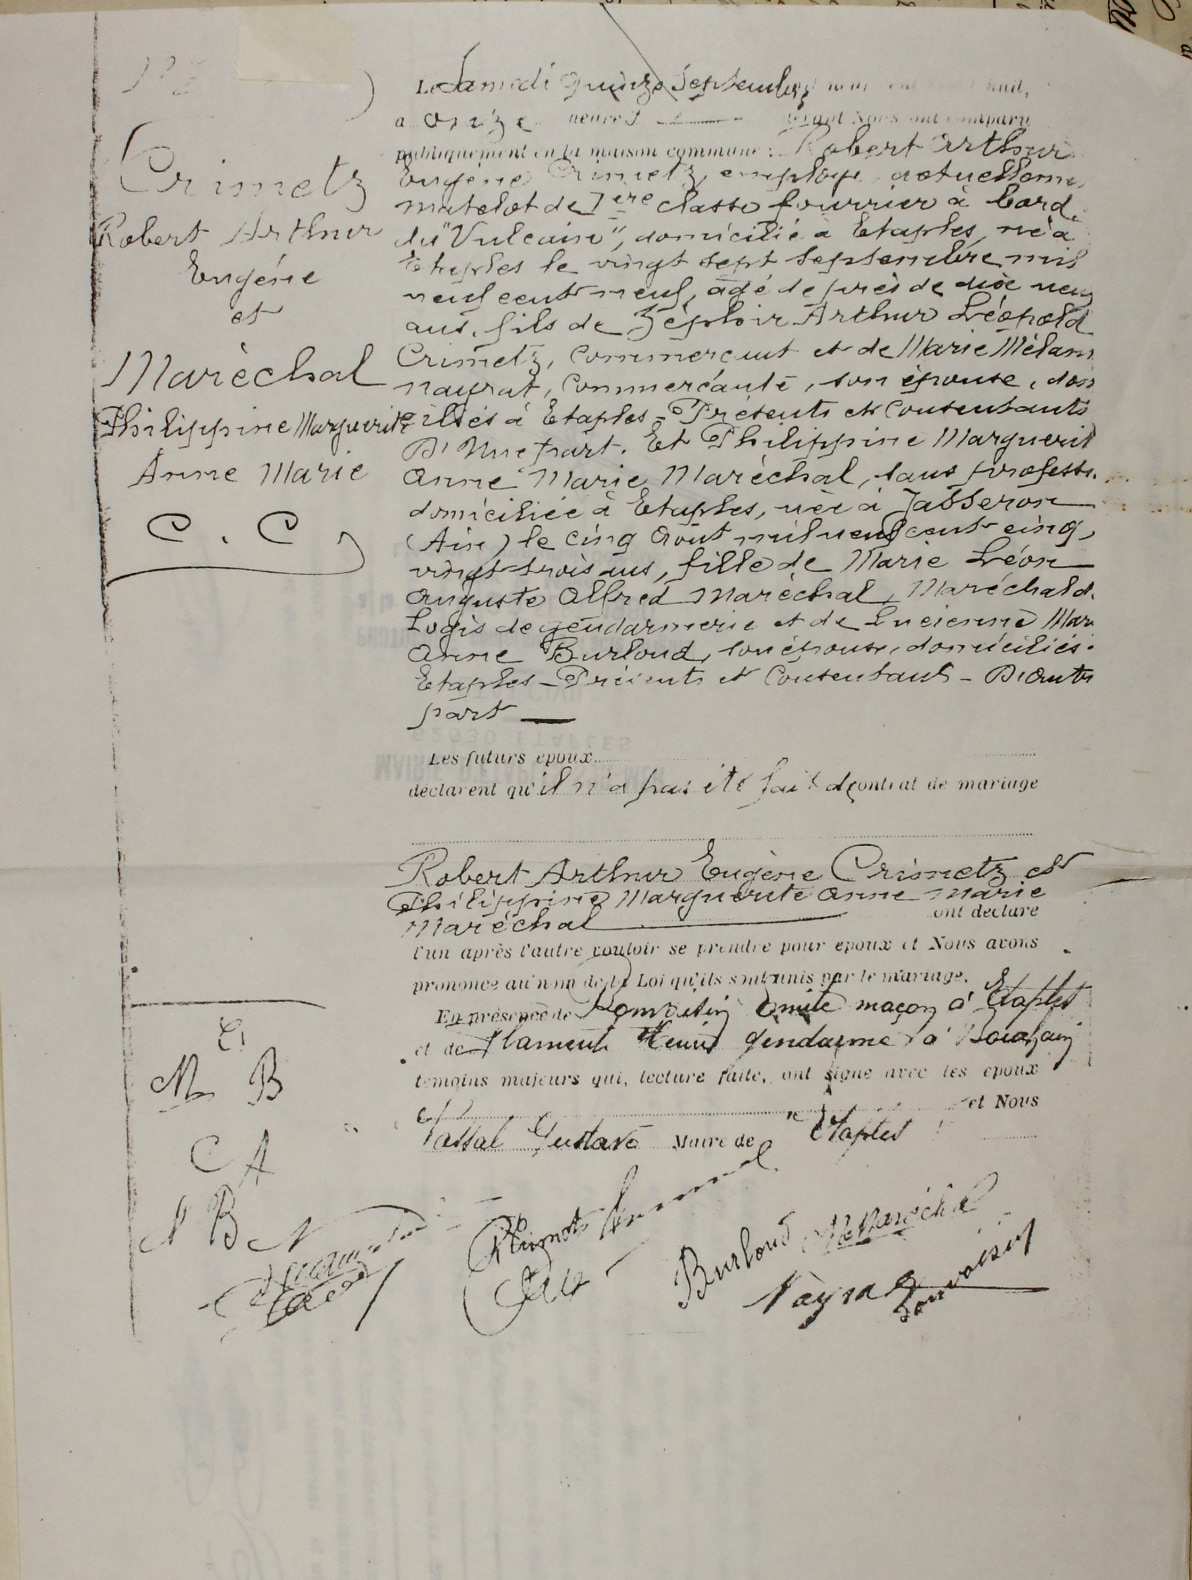 Crimetz
Robert Arthur
Eugène
et
Maréchal
Philippine Marguerite
Anne Marie
C. C
Le Samedi quinze Septembre huit,
à onze heures devant Nous ont comparu
publiquement en la maison commune : Robert Arthur
Eugène Crimetz, employé, actuelleme
matelot de 1ere classe fourrier à bord
du "Vulcain", domicilié à Etaples, né à
Etaples le vingt sept septembre mil
neuf cent neuf, âgé de près de dix neuf
ans, fils de Zéphir Arthur Léopold
Crimetz, commerçant et de Marie Mélani
Nayrat, commerçante, son épouse, dom
iciliés à Etaples - Présents et consentants
D'Une part. Et Philippine Marguerit
Anne Marie Maréchal, sans profess.
domiciliée à Etaples, née à Jasseron
(Ain) le cinq Août mil neuf cent cinq,
vingt-trois ans, fille de Marie Léon
Auguste Alfred Maréchal, Maréchal d.
Logis de gendarmerie et de Lucienne Mar
Anne Burloud, son épouse, domiciliés
Etaples - Présents et Consentants - D'autre
part
Les futurs époux
déclarent qu'il n'a pas été fait de contrat de mariage
Robert Arthur Eugène Crimetz et
Philippine Marguerite Anne Marie
Maréchal ont déclaré
l'un après l'autre vouloir se prendre pour époux et Nous avons
prononcé au nom de la Loi qu'ils sont unis par le mariage.
En présence de Emile maçon à Etaples
et de Flament Henri gendarme à
témoins majeurs qui, lecture faite, ont signé avec les époux
et Nous
Gustave Maire de Etaples
M B
C A
N B
Burloud Maréchal